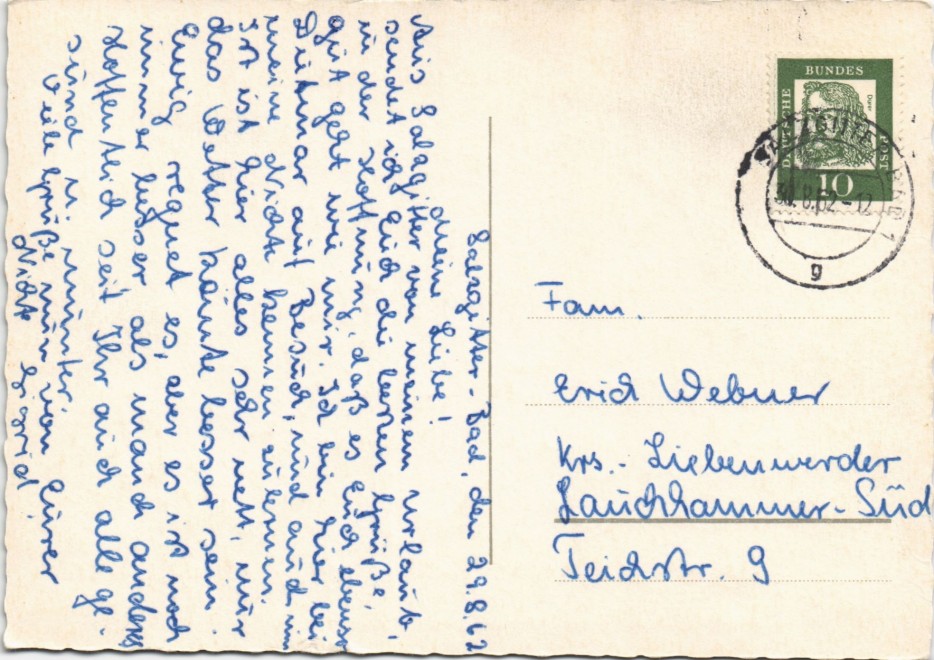 Salzgitter-Bad, den 29.8.62
Meine Liebe!
Aus Salzgitter von meinem Urlaub,
sendet ich Euch die besten Grüße,
in der Hoffnung, daß es Euch ebenso
gut geht wie mir. Ich bin hier bei
Dietmar auf Besuch, und auch um
meine Nichte kennen zulernen.
Ist ist hier alles sehr nett, nur
das Wetter könnte besser sein.
Ewig regnet es, aber es ist noch
immer besser als manch anders
Hoffentlich seit Ihr auch alle ge-
sund u. munter.
Viele Grüße nun von Eurer
Nichte
DEUTSCHE
BUNDES
POST
Dürer
10
30.8.62-12
g
Fam.
Erich Webner
Krs.- Liebenwerder
Lauchhammer-Süd
Teichstr. 9